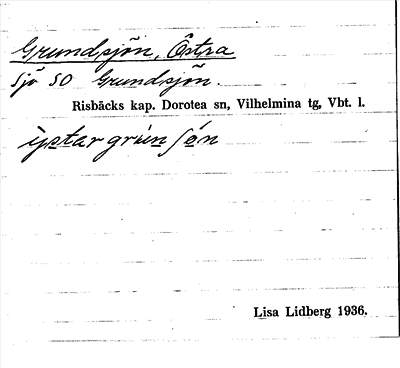 Grundsjön, Östra
sjö SO Grundsjön.
Risbäcks kap. Dorotea sn, Vilhelmina tg, Vbt. l.
Lisa Lidberg 1936.